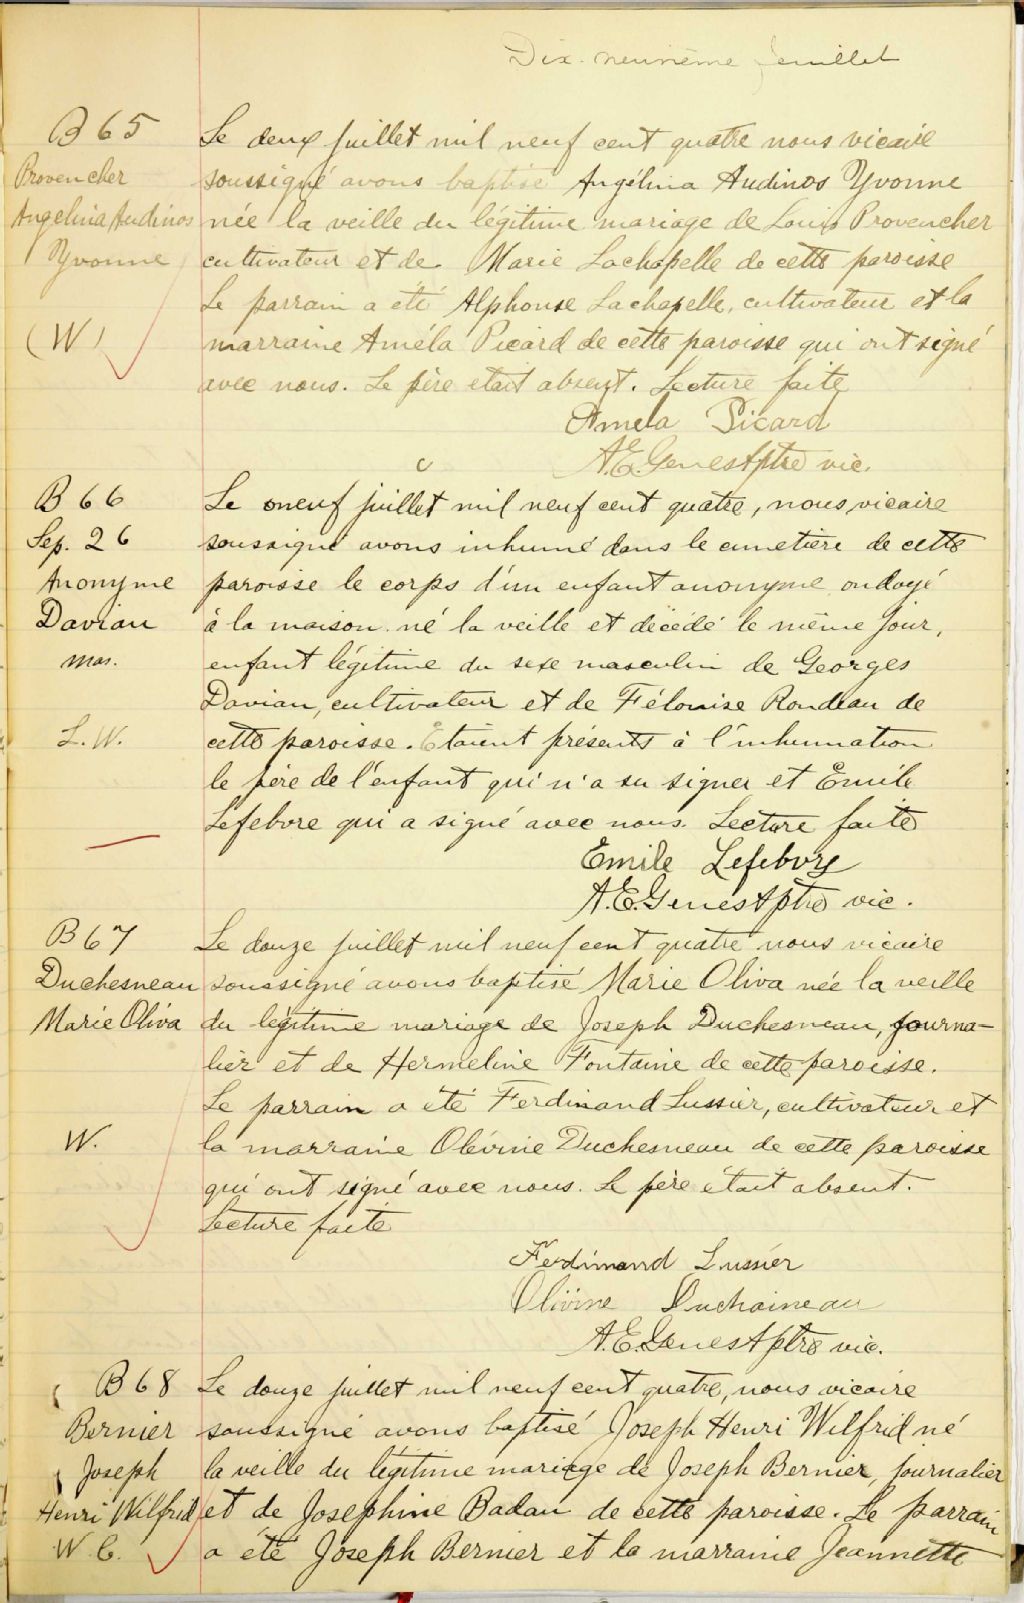 Dix-neuvième feuillet
B 65
Provencher
Angelina Audinos
Yvonne
(W)
Le deux juillet mil neuf cent quatre nous vicaire
soussigné avons baptisé Angélina Audinos Yvonne
née la veille du légitime mariage de Louis Provencher
cultivateur et de Marie Lachapelle de cette paroisse
Le parrain a été Alphonse Lachapelle, cultivateur et la
marraine Améla Picard de cette paroisse qui ont signé
avec nous. Le père etait absent. Lecture faite
Amela Picard
A.E. Genest ptre vic.
B 66
Sep. 26
Anonyme
Davian
mas.
L. W.
Le neuf juillet mil neuf cent quatre, nous, vicaire
soussigné avons inhumé dans le cimetière de cette
paroisse le corps d'un enfant anonyme ondoyé
à la maison né la veille et décédé le même jour,
enfant légitime du sexe masculin de Georges
Davian, cultivateur et de Félonise Rondeau de
cette paroisse. Etaient présents à l'inhumation
le père de l'enfant qui n'a su signer et Emile
Lefebvre qui a signé avec nous. Lecture faite
Emile Lefebvre
A.E. Genest ptre vic.
B 67
Duchesneau
Marie Oliva
W.
Le douze juillet mil neuf cent quatre nous vicaire
soussigné avons baptisé Marie Oliva née la veille
du légitime mariage de Joseph Duchesneau, journa-
lier et de Hermeline Fontaine de cette paroisse.
Le parrain a été Ferdinand Lussier, cultivateur et
la marraine Olévine Duchesneau de cette paroisse
qui ont signé avec nous. Le père était absent.
Lecture faite
Ferdinand Lussier
Olivine Duchaineau
A.E. Genest ptre vic.
B 68
Bernier
Joseph
Henri Wilfrid
W C.
Le douze juillet mil neuf cent quatre, nous vicaire
soussigné avons baptisé Joseph Henri Wilfrid né
la veille du légitime mariage de Joseph Bernier, journalier
et de Josephine Badau de cette paroisse. Le parrain
a été Joseph Bernier et la marraine Jeannette